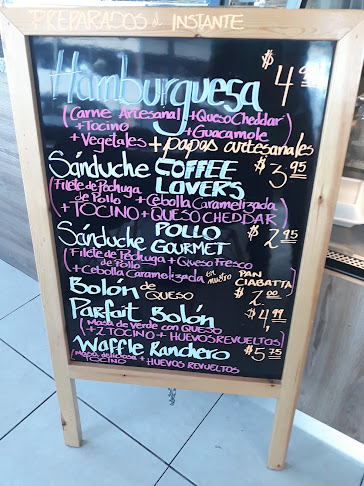 PREPARADOS al INSTANTE
Hamburguesa $4
(Carne Artesanal +Queso Cheddar
+Tocino +Guacamole)
+Vegetales +papas artesanales
Sánduche COFFEE LOVERS $3,95
(Filete de Pechuga de Pollo +Cebolla Caramelizada
+TOCINO +QUESO CHEDDAR)
Sánduche POLLO GOURMET $2,95
(Filete de Pechuga de Pollo +Queso Fresco
+Cebolla Caramelizada en nuestro PAN CIABATTA)
Bolón de QUESO $2,00
Parfait Bolón $4,99
(Masa de Verde con QUESO
+2 TOCINO +HUEVOS REVUELTOS)
Waffle Ranchero $5,75
(Masa deliciosa + TOCINO +HUEVOS REVUELTOS